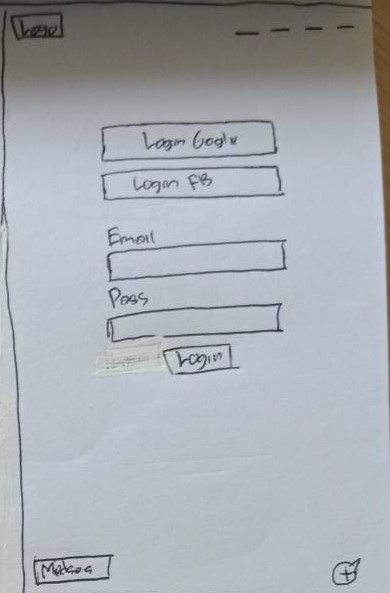 Logo
Login Google
Login FB
Email
Pass
Login
Medsos